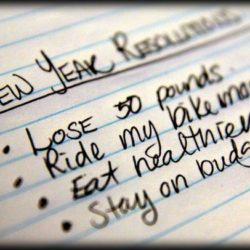 EW YEAR RESOLUTIONS
• LOSE 50 pounds
• Ride my bike mor
• Eat healthie
• Stay on budg